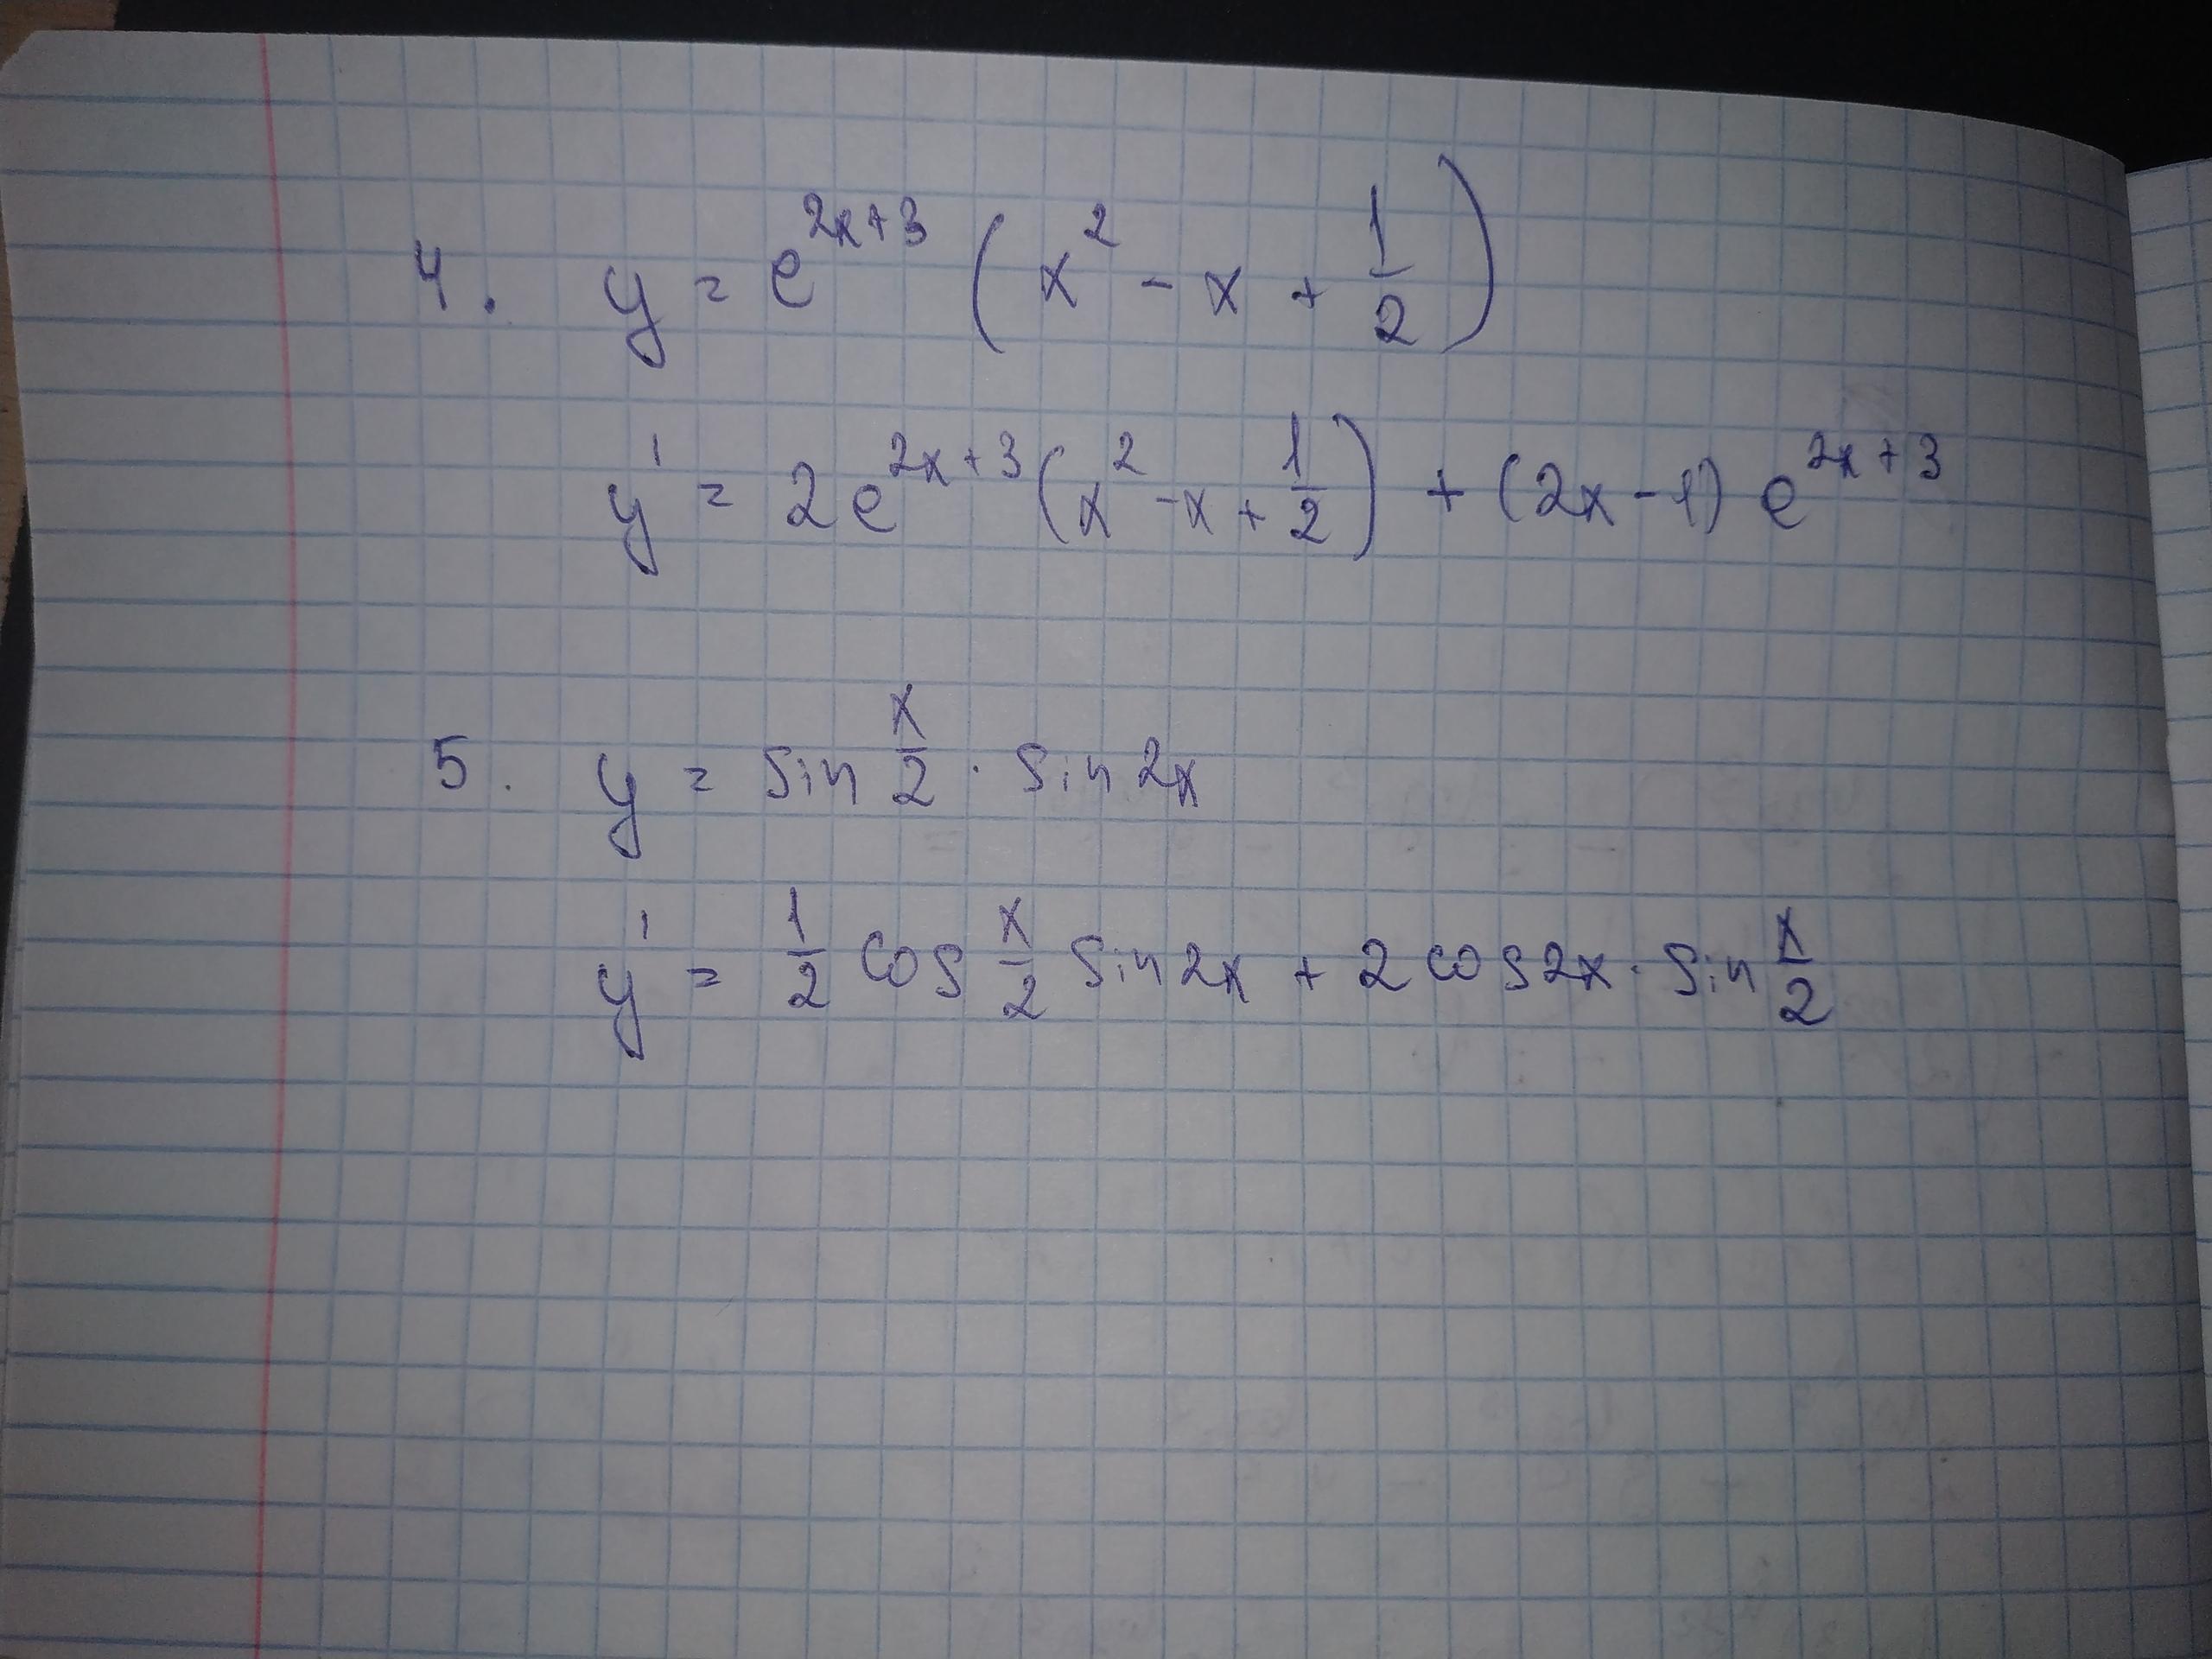 4. y = e^{2x+3} (x^2 - x + \frac{1}{2})
y' = 2e^{2x+3} (x^2 - x + \frac{1}{2}) + (2x - 1) e^{2x+3}
5. y = sin \frac{x}{2} · sin 2x
y' = \frac{1}{2} cos \frac{x}{2} sin 2x + 2 cos 2x · sin \frac{x}{2}